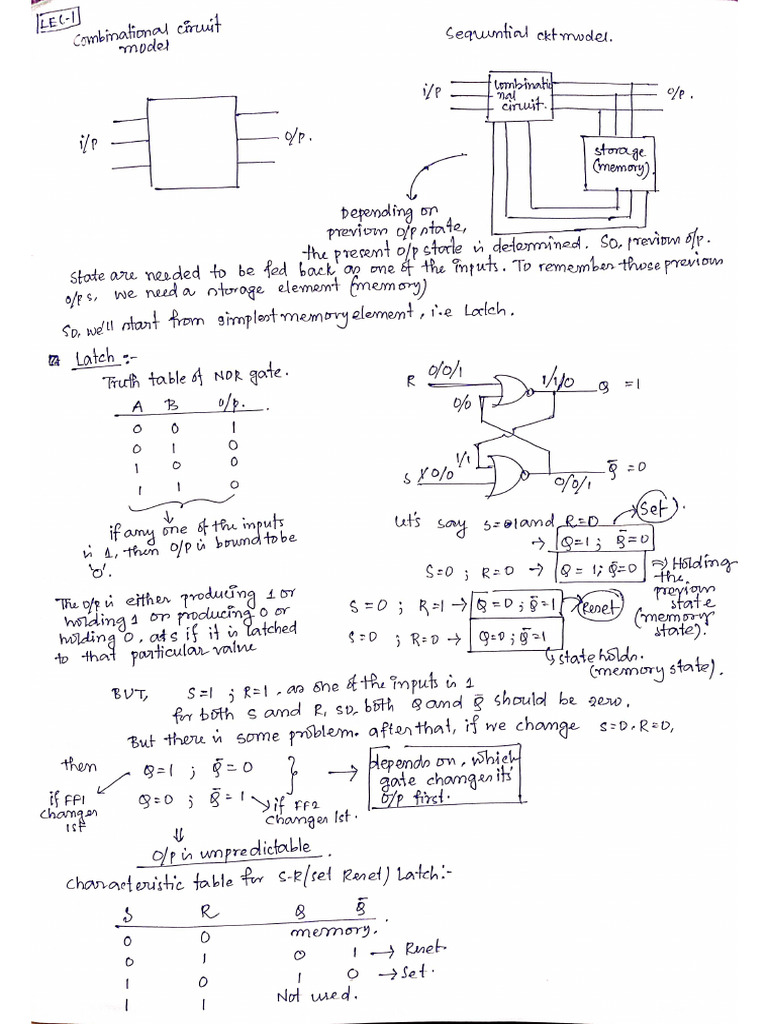 LEC-1
Combinational circuit
model
i/p
o/p.
Sequential ckt model.
i/p
Combinatio
nal
circuit.
o/p.
storage
(memory).
Depending on
previous o/p state,
the present o/p state is determined. So, previous o/p.
state are needed to be fed back as one of the inputs. To remember those previous
o/ps, we need a storage element (memory)
So, we'll start from simplest memory element, i.e Latch.
Latch :-
Truth table of NOR gate.
A B o/p.
0 0 1
0 1 0
1 0 0
1 1 0
if any one of the inputs
is 1, then o/p is bound to be
'0'.
The o/p is either producing 1 or
holding 1 or producing 0 or
holding 0, as if it is latched
to that particular value
R 0/0/1 1/1/0 Q =1
0/0
1/1
S 1/0/0 0/0/1 Q̄ =0
Let's say S=1 and R=0 (Set).
→ Q=1 ; Q̄=0
S=0 ; R=0 → Q = 1; Q̄=0 ⇒ Holding
the
previous
state
(memory
state).
S=0 ; R=1 → Q=0 ; Q̄=1 Reset
S=0 ; R=0 → Q=0 ; Q̄=1
↳ state holds.
(memory state).
BUT, S=1 ; R=1. as one of the inputs is 1
for both S and R, so both Q and Q̄ should be zero.
But there is some problem. after that, if we change S=0, R=0,
then Q=1 ; Q̄=0
Q=0 ; Q̄=1
if FF1
changes
1st
if FF2
changes 1st.
→ depends on, which
gate changes its'
o/p first.
⇓
O/p is unpredictable.
Characteristic table for S-R (set Reset) Latch:-
S R Q Q̄
0 0 memory.
0 1 0 1 → Reset.
1 0 1 0 → Set.
1 1 Not used.